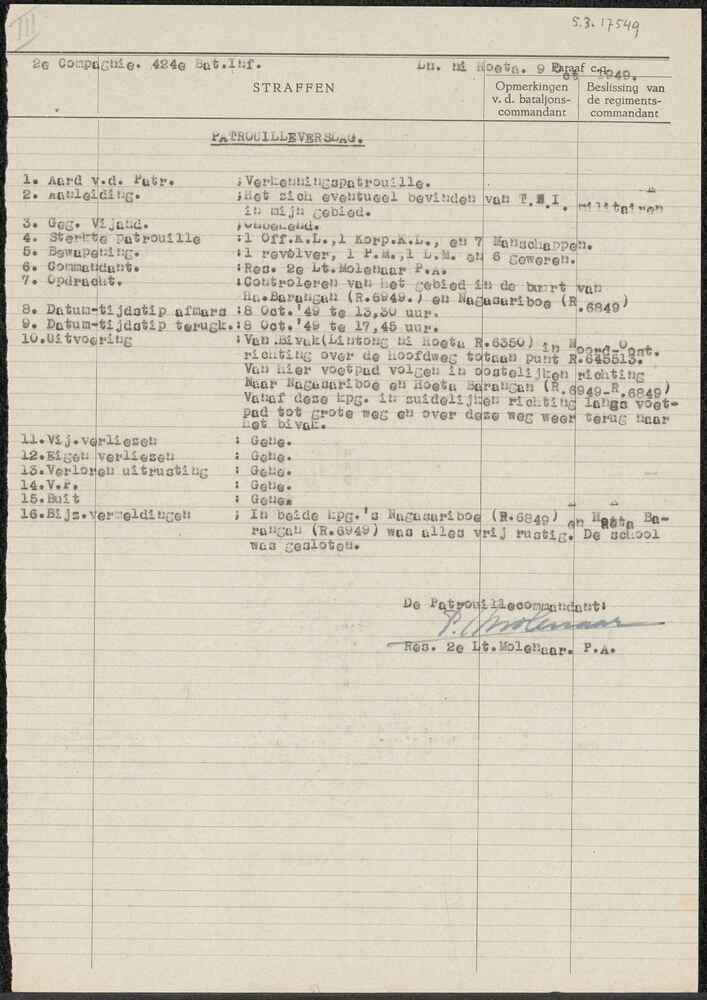 III
S.3. 17549
2e Compagnie. 424e Bat.Inf. Ln. ni Hoeta. 9 Oct 1949.
Paraaf c.q.
STRAFFEN
Opmerkingen v. d. bataljons-commandant
Beslissing van de regiments-commandant
PATROUILLEVERSLAG.
1. Aard v.d. Patr. ;Verkenningspatrouille.
2. Aanleiding. ;Het zich eventueel bevinden van T.N.I. militairen
in mijn gebied.
3. Geg. Vijand. ;Onbekend.
4. Sterkte patrouille :1 Off.K.L.,1 Korp.K.L., en 7 Manschappen.
5. Bewapening. :1 revolver, 1 P.M.,1 L.M. en 6 geweren.
6. Commandant. :Res. 2e Lt.Molenaar P.A.
7. Opdracht. :Controleren van het gebied in de buurt van
Ha.Barangan (R.6949.) en Nagasariboe (R.6849)
8. Datum-tijdstip afmars :8 Oct.'49 te 13,30 uur.
9. Datum-tijdstip terugk.:8 Oct.'49 te 17,45 uur.
10.Uitvoering :Van Bivak(Lintong ni Hoeta R.6350) in Noord-Oost.
richting over de hoofdweg totaan punt R.645513.
Van hier voetpad volgen in oostelijken richting
Naar Nagasariboe en Hoeta Barangan (R.6949-R.6849)
Vanaf deze kpg. in zuidelijken richting langs voet-
pad tot grote weg en over deze weg weer terug naar
het bivak.
11.Vij.verliezen : Gene.
12.Eigen verliezen : Gene.
13.Verloren uitrusting : Gene.
14.V.F. : Gene.
15.Buit : Genes
16.Bijz.vermeldingen ; In beide kpg.'s Nagasariboe (R.6849) en Hoeta Ba-
rangan (R.6949) was alles vrij rustig. De school
was gesloten.
De Patrouillecommandant:
P. Molenaar
Res. 2e Lt.Molenaar. P.A.